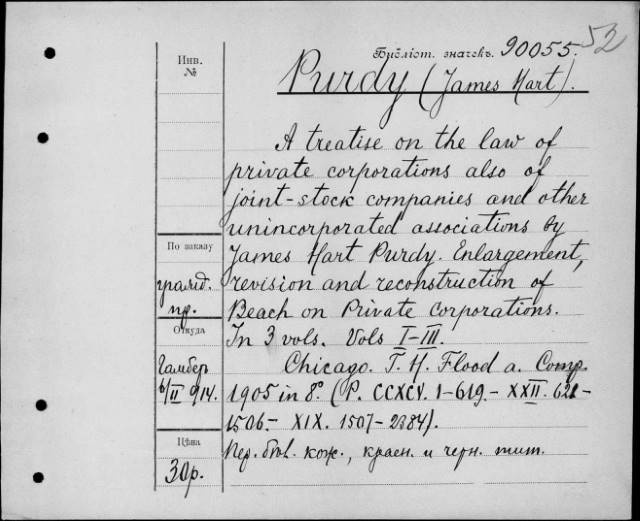 52
Библіот. значекъ. 90055.
Инв. №
Purdy (James Hart).
A treatise on the law of
private corporations also of
joint-stock companies and other
unincorporated associations by
James Hart Purdy. Enlargement,
revision and reconstruction of
Beach on Private corporations.
In 3 vols. Vols I-III.
Chicago. T. H. Flood a. Comp.
1905 in 8°. (P. CCXCV. 1-619.- XXII. 621-
1506.- XIX. 1507-2384).
Пер. библ. кож., красн. и черн. тит.
По заказу
гражд.
пр.
Откуда
Гамбер
6/II 914.
Цѣна
30р.